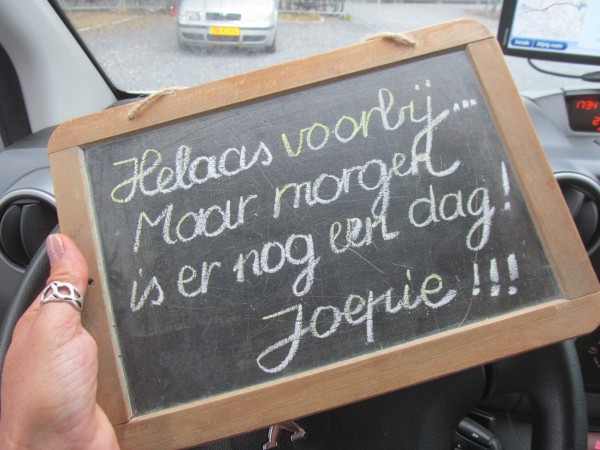 Helaas voorbij...
Maar morgen
is er nog een dag!
Joepie!!!